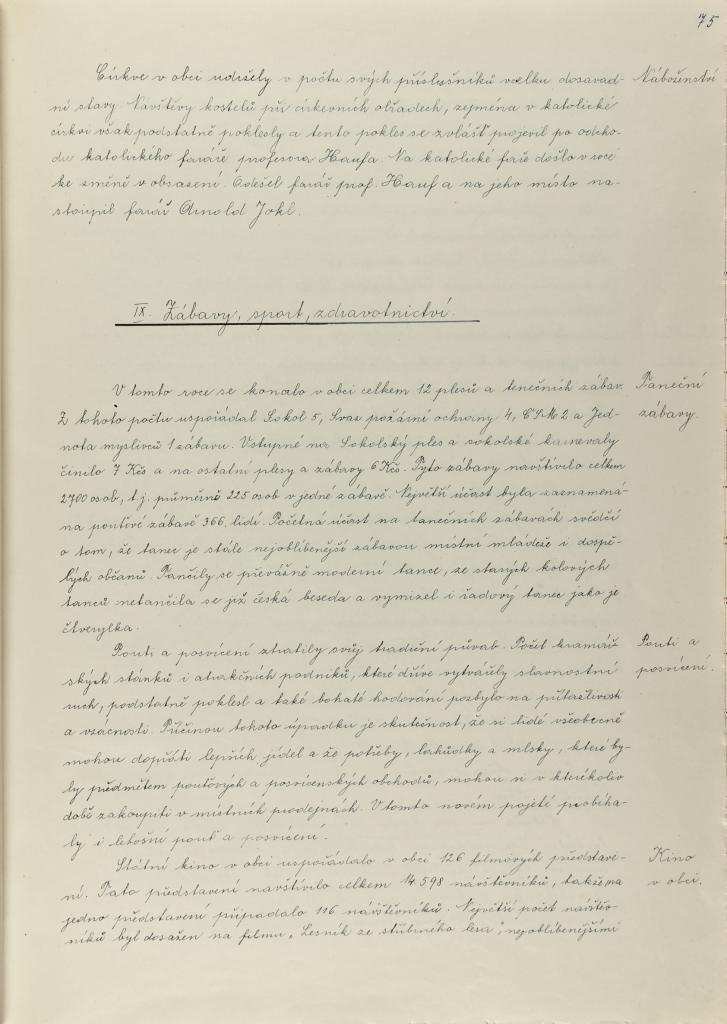 75
Církve v obci udržely v počtu svých příslušníků vcelku dosavad- Náboženství
ní stavy. Návštěvy kostelů při církevních obřadech, zejména v katolické
církvi však podstatně poklesly a tento pokles se zvlášť projevil po odcho-
du katolického faráře profesora Haufa. Na katolické faře došlo v roce
ke změně v obsazení. Odešel farář prof. Hauf a na jeho místo na-
stoupil farář Arnold Jokl.
IX. Zábavy, sport, zdravotnictví.
V tomto roce se konalo v obci celkem 12 plesů a tanečních zábav. Taneční
Z tohoto počtu uspořádal Sokol 5, Svaz požární ochrany 4, ČSM 2 a Jed- zábavy.
nota myslivců 1 zábavu. Vstupné na Sokolský ples a sokolské karnevaly
činilo 7 Kčs a na ostatní plesy a zábavy 6 Kčs. Tyto zábavy navštívilo celkem
2700 osob, t.j. průměrně 225 osob v jedné zábavě. Největší účast byla zaznamená-
na pouťové zábavě 366 lidí. Početná účast na tanečních zábavách svědčí
o tom, že tanec je stále nejoblíbenější zábavou místní mládeže i dospě-
lých občanů. Tančily se převážně moderní tance, ze starých kolových
tanců netančila se již česká beseda a vymizel i řadový tanec jako je
čtverylka.
Pouti a posvícení ztratily svůj tradiční půvab. Počet kramář- Pouti a
ských stánků i atrakčních podniků, které dříve vytvářely slavnostní posvícení.
ruch, podstatně poklesl a také bohaté hodování pozbylo na přitažlivosti
a vzácnosti. Příčinou tohoto úpadku je skutečnost, že si lidé všeobecně
mohou dopřáti lepších jídel a že potřeby, lahůdky a mlsky, které by-
ly předmětem pouťových a posvícenských obchodů, mohou si v kterékoliv
době zakoupiti v místních prodejnách. V tomto novém pojetí probíha-
ly i letošní pouť a posvícení.
Státní kino v obci uspořádalo v obci 126 filmových představe- Kino
ní. Tato představení navštívilo celkem 14.598 návštěvníků, takže na v obci.
jedno představení připadalo 116 návštěvníků. Největší počet návštěv-
níků byl dosažen na filmu „Lesník ze stříbrného lesa", nejoblíbenějšími